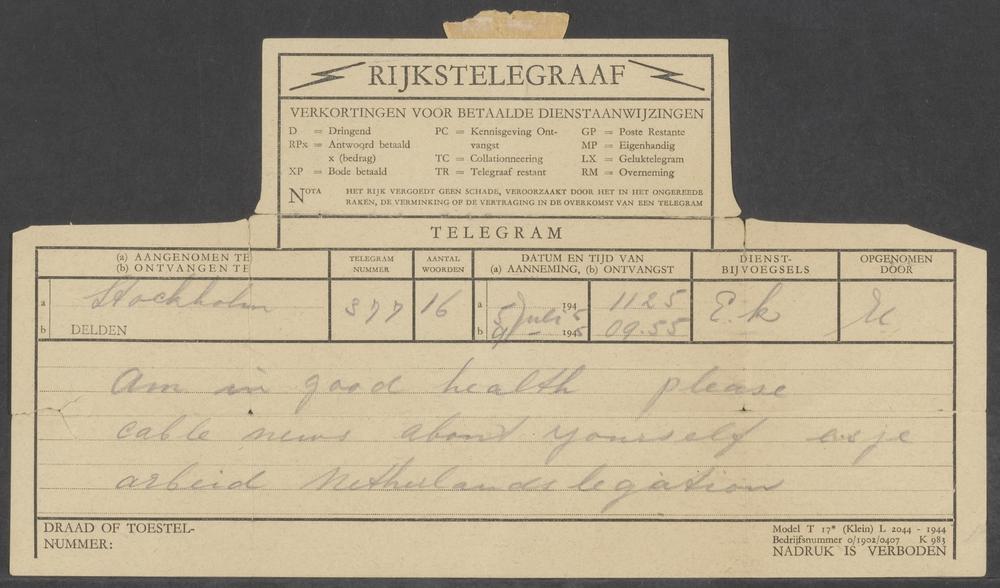 RIJKSTELEGRAAF
VERKORTINGEN VOOR BETAALDE DIENSTAANWIJZINGEN
D = Dringend
RPx = Antwoord betaald x (bedrag)
XP = Bode betaald
PC = Kennisgeving Ont-
vangst
TC = Collationneering
TR = Telegraaf restant
GP = Poste Restante
MP = Eigenhandig
LX = Geluktelegram
RM = Overneming
NOTA HET RIJK VERGOEDT GEEN SCHADE, VEROORZAAKT DOOR HET IN HET ONGEREEDE
RAKEN, DE VERMINKING OF DE VERTRAGING IN DE OVERKOMST VAN EEN TELEGRAM
TELEGRAM
(a) AANGENOMEN TE
(b) ONTVANGEN TE
TELEGRAM
NUMMER
AANTAL
WOORDEN
DATUM EN TIJD VAN
(a) AANNEMING, (b) ONTVANGST
DIENST-
BIJVOEGSELS
OPGENOMEN
DOOR
a Stockholm 377 16 a 5 Juli 1945 1125 E.k
b DELDEN b 1945 09.55
am in good health please
cable news about yourself
arbeid Netherlandslegation
DRAAD OF TOESTEL-
NUMMER:
Model T 17* (Klein) L 2044 - 1944
Bedrijfsnummer 0/1902/0407 K 983
NADRUK IS VERBODEN